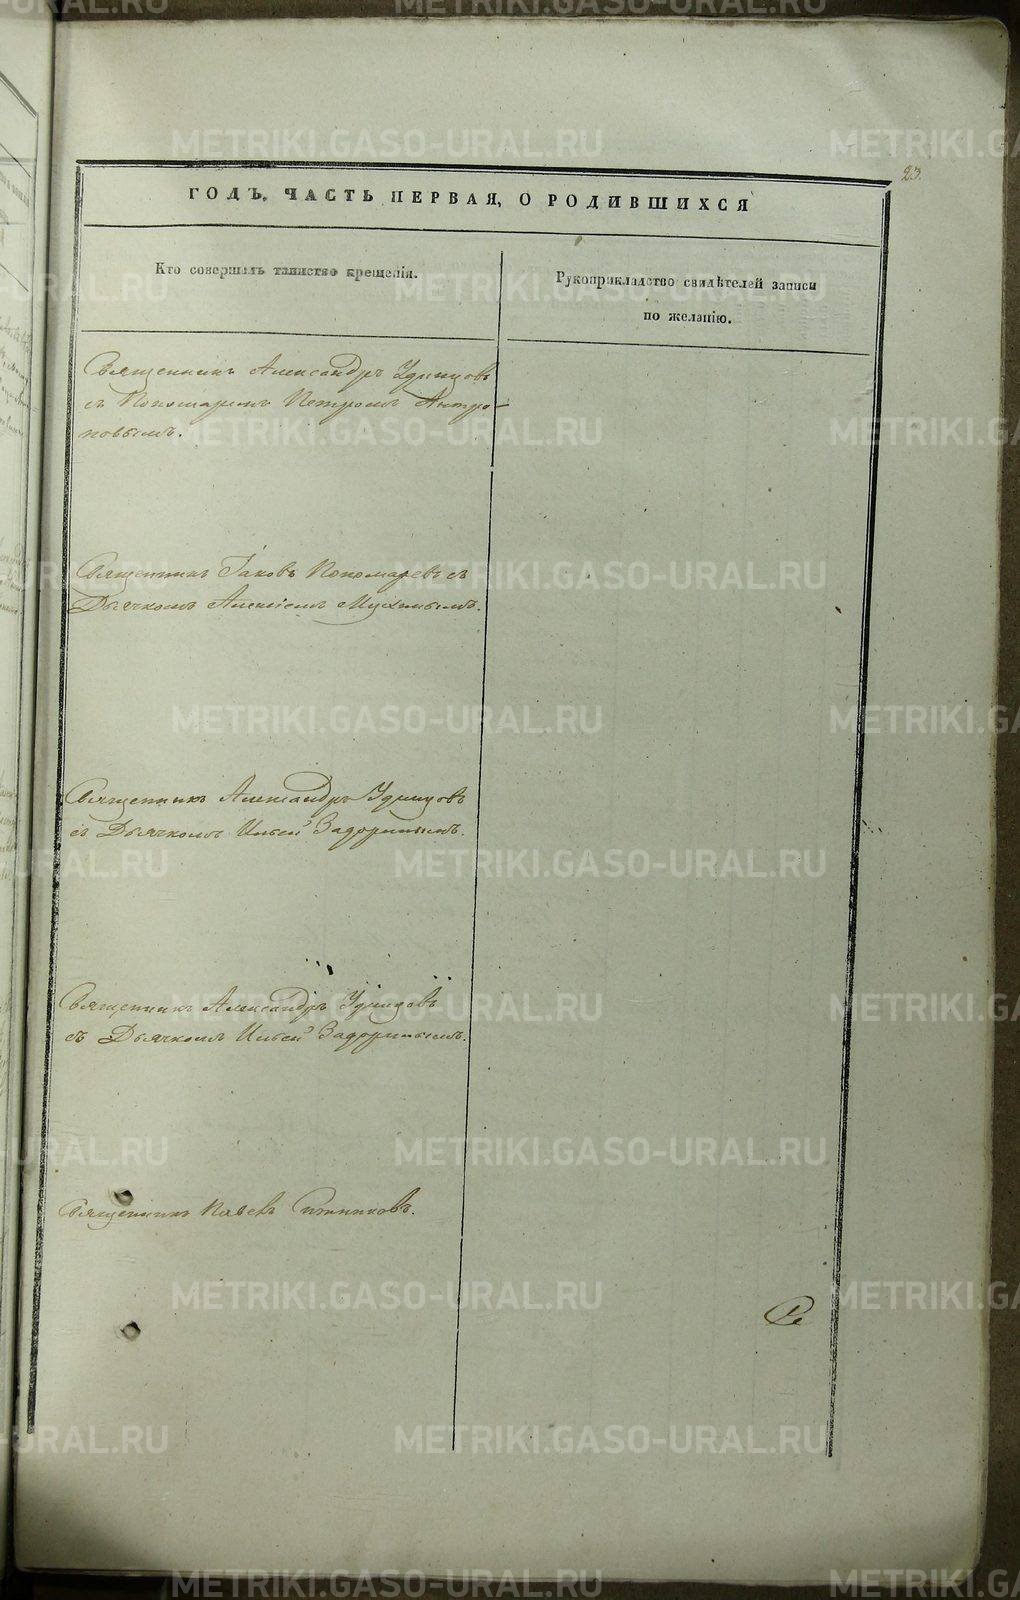 23.
ГОДЪ. ЧАСТЬ ПЕРВАЯ, О РОДИВШИХСЯ
Кто совершалъ таинство крещенія.
Рукоприкладство свидѣтелей записи
по желанію.
Священникъ Александръ Удинцовъ
съ Пономаремъ Петромъ Антро-
повымъ.
Священникъ Іаковъ Пономаревъ съ
Дьячкомъ Алексіемъ
Священникъ Александръ Удинцовъ
съ Дьячкомъ Ильей Задоринымъ.
Священникъ Александръ Удинцовъ
съ Дьячкомъ Ильей Задоринымъ.
Священникъ Павелъ Ситниковъ.
Ре
METRIKI.GASO-URAL.RU